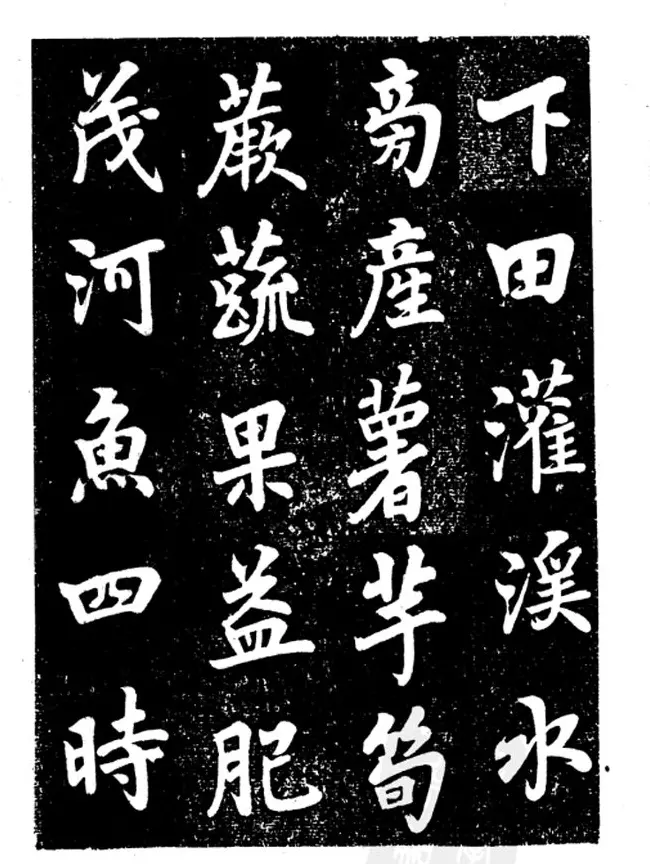 下田灌溪水
旁產薯芋筍
蕨蔬果益肥
茂河魚四時